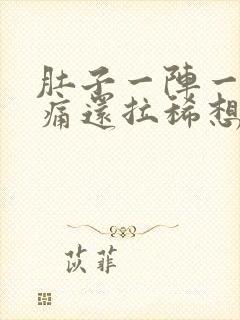 肚子一陣一
痛還拉稀想
苡菲